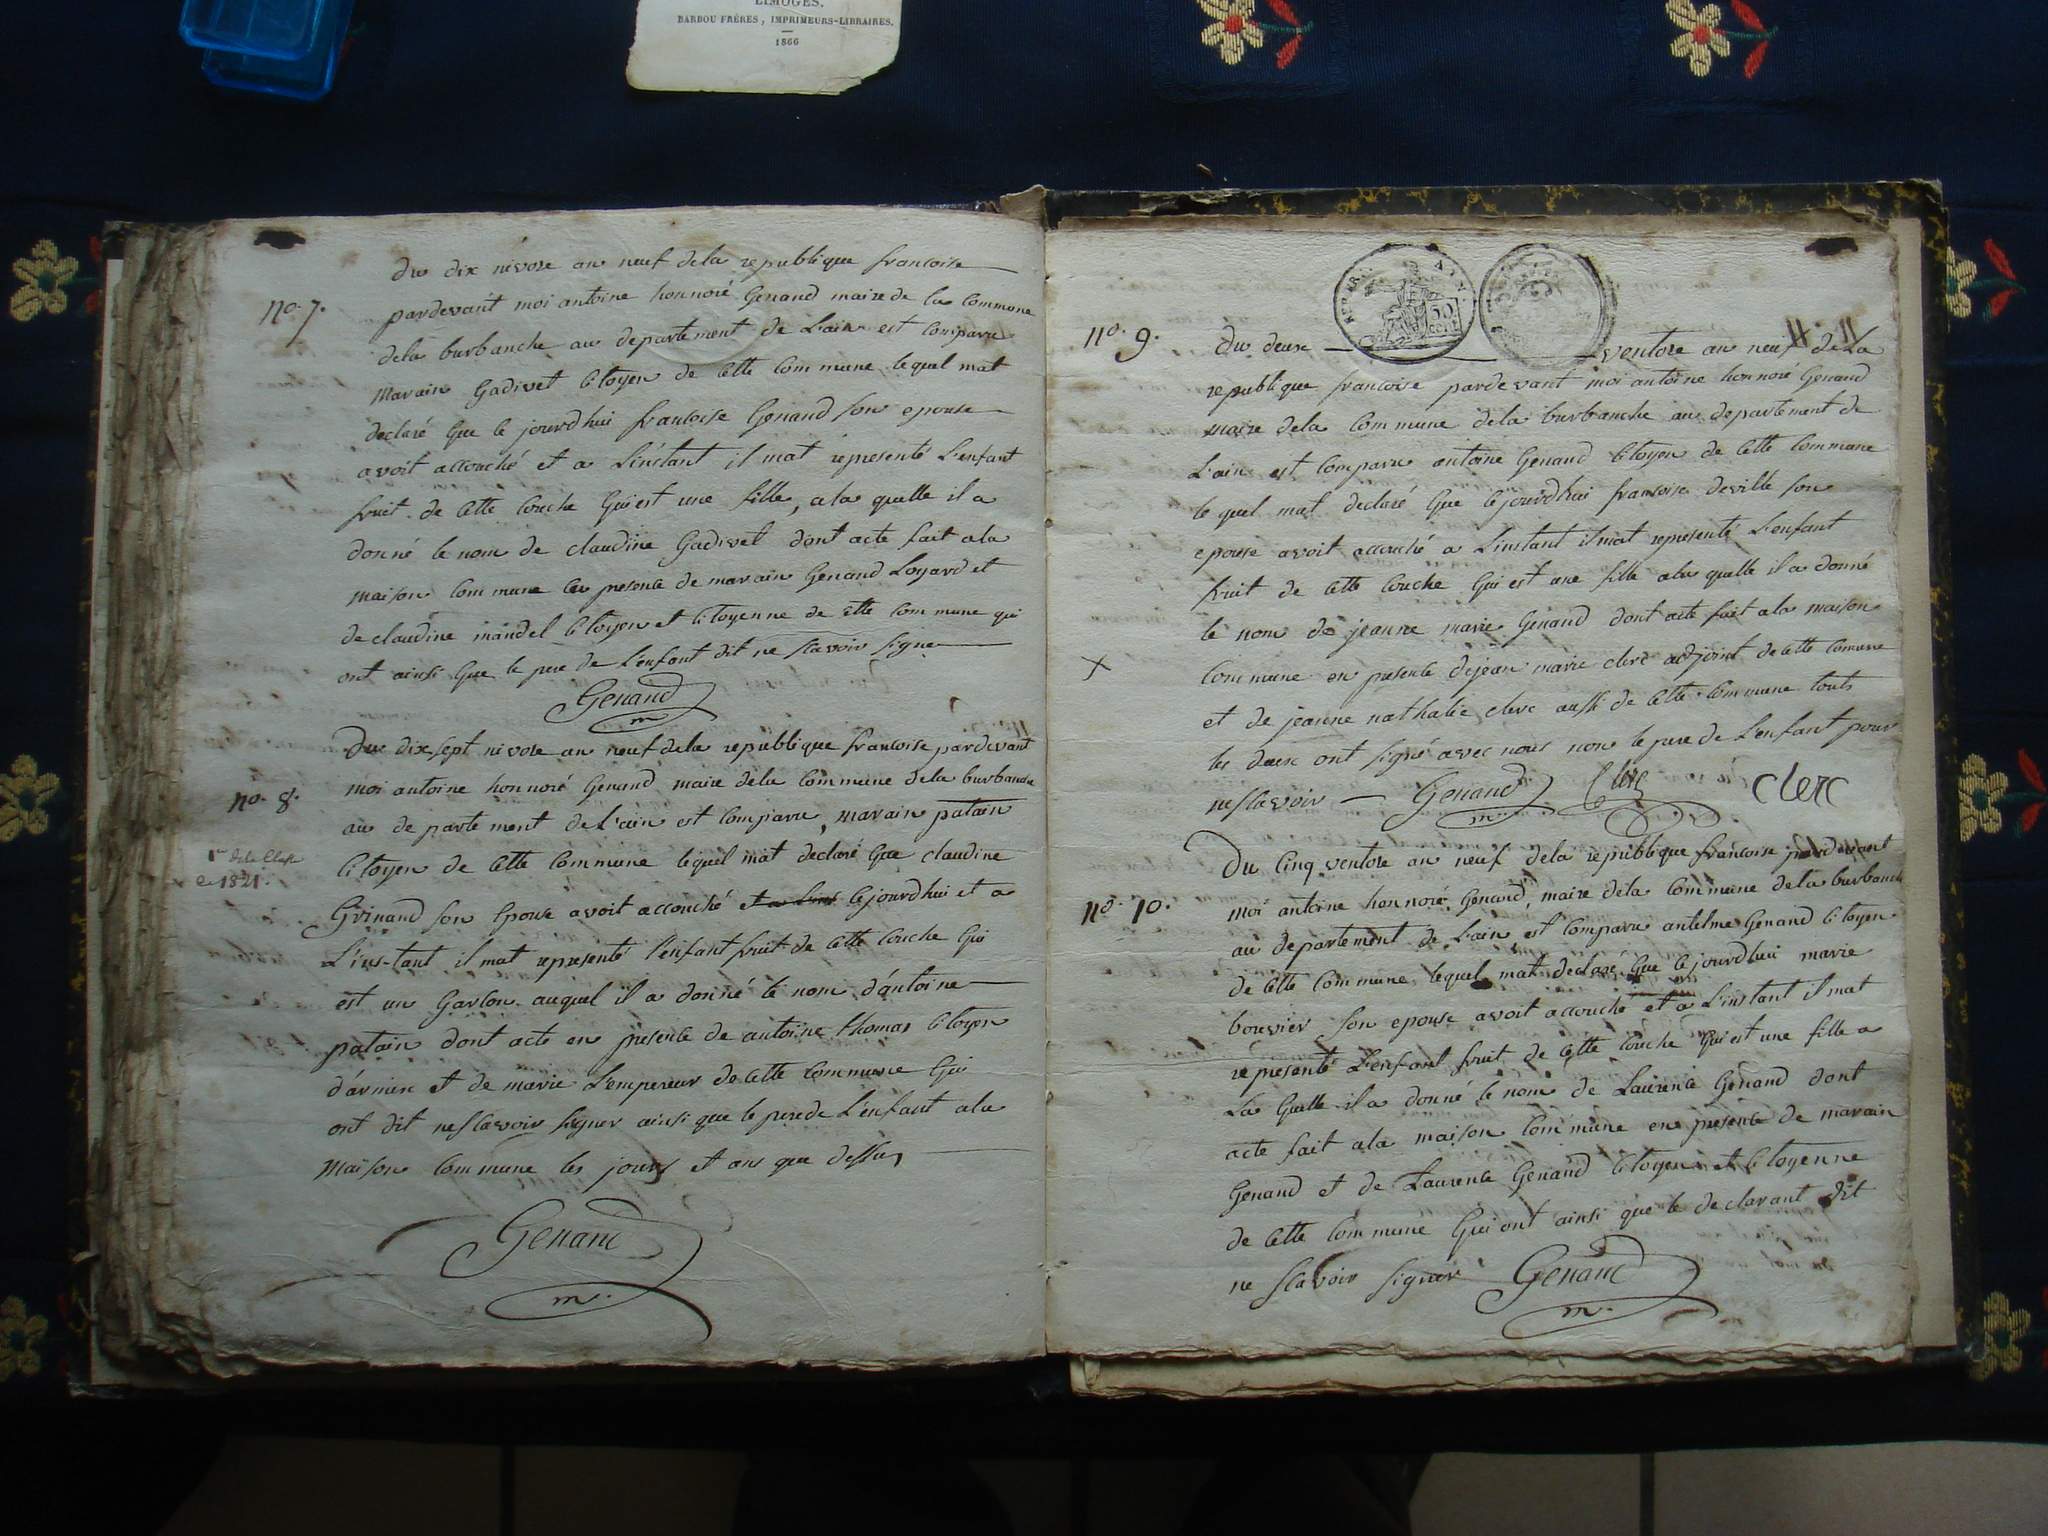 LIMOGES.
BARBOU FRÈRES, IMPRIMEURS-LIBRAIRES.
1866
du dix nivose an neuf dela republique francoise
no. 7.
pardevant moi antoine honnoré Genand maire de la commune
dela burbanche au departement de L'ain est comparu
Marain Gadivet Citoyen de Cette Commune lequel mat
declaré que le jourdhui francoise Genand son epouse
avoit accouché et a L'instant il mat representé L'enfant
fruit de Cette Couche qui est une fille, a la quelle il a
donné le nom de claudine Gadivet dont acte fait ala
maison Commune en presence de marain Genand Loyard et
de claudine mandel Citoyen et Citoyenne de Cette Commune qui
ont ainsi que le pere de L'enfant dit ne scavoir signe
Genand
m
Du dix sept nivose an neuf dela republique francoise pardevant
no. 8.
moi antoine honnoré Genand maire dela Commune dela burbanche
au departement de L'ain est comparu, marain patain
1er dela Classe
de 1821.
Citoyen de Cette Commune lequel mat declaré que claudine
Grinand son Epouse avoit accouché et a L'ins cejourdhui et a
L'ins-tant il mat representé l'enfant fruit de Cette Couche qui
est un Garcon auquel il a donné le nom d'antoine
patain dont acte en presence de antoine thomas Citoyen
d'armix et de marie L'empereur de Cette Commune qui
ont dit ne scavoir signer ainsi que le pere de L'enfant ala
Maison Commune les jours et ans que dessus
Genand
m.
50
CENT
no. 9.
Du deux ventose an neuf de La
republique francoise pardevant moi antoine honnoré Genand
maire dela Commune dela burbanche au departement de
L'ain est comparu antoine Genand Citoyen de Cette Commune
le quel mat declaré que cejourdhui francoise deville son
epouse avoit accouché a L'instant il mat representé L'enfant
fruit de Cette Couche qui est une fille ala quelle il a donné
le nom de jeanne marie Genand dont acte fait ala maison
x
Commune en presence de jean marie clerc adjoint de Cette Comune
et de jeanne nathalie clerc aussi de Cette Commune touts
les deux ont signé avec nous non le pere de L'enfant pour
ne scavoir Genand Clerc clerc
m
Du Cinq ventose an neuf dela republique francoise pardevant
no. 10.
moi antoine honnoré Genand, maire dela Commune dela burbanche
au departement de L'ain est comparu antelme Genand Citoyen
de Cette Commune lequel mat declaré que cejourdhui marie
bouvier son epouse avoit accouché et a L'instant il mat
representé L'enfant fruit de Cette Couche qui est une fille a
La quelle il a donné le nom de Laurence Genand dont
acte fait ala maison Commune en presence de marain
Genand et de Laurence Genand Citoyen et Citoyenne
de Cette Commune qui ont ainsi que le declarant dit
ne scavoir signer Genand
m.